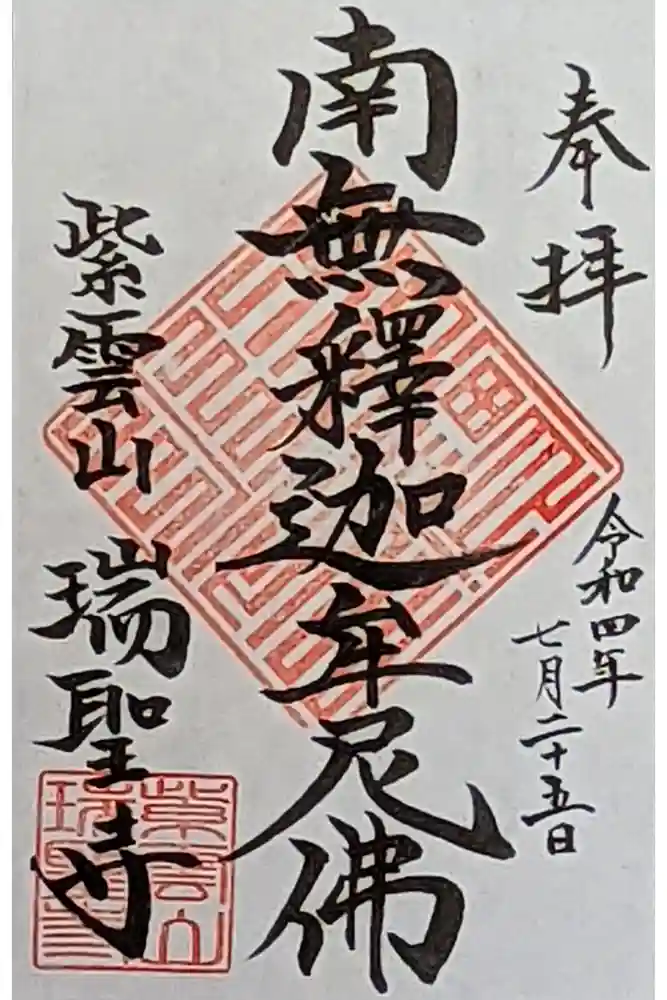 奉拝
令和四年
七月二十五日
南無釋迦牟尼佛
紫雲山 瑞聖寺
紫雲山
瑞聖寺